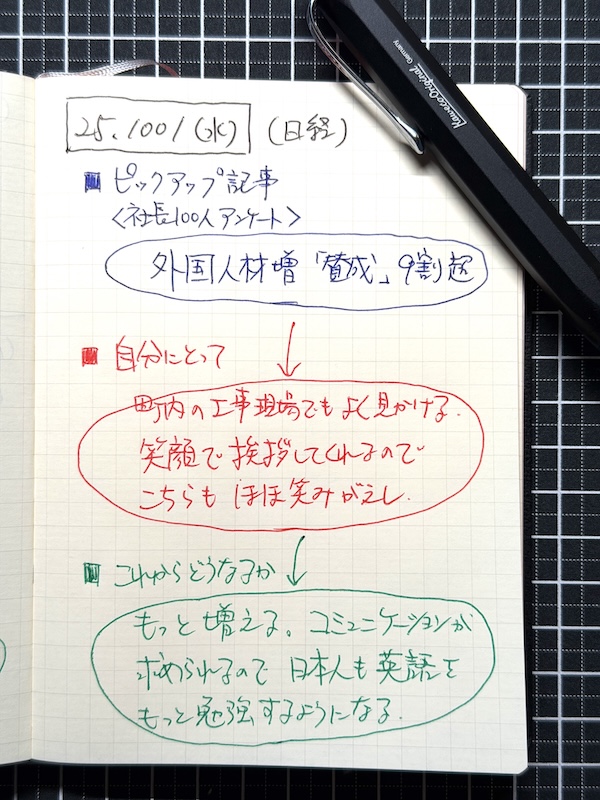 25.1001(水) (日経)
■ ピックアップ記事
<社長100人アンケート>
外国人材増「賛成」9割超
■ 自分にとって
町内の工事現場でもよく見かける.
笑顔で挨拶してくれるので
こちらもほほ笑みがえし.
■ これからどうなるか
もっと増える。コミュニケーションが
求められるので日本人も英語を
もっと勉強するようになる.
Kaweco Original
Germany